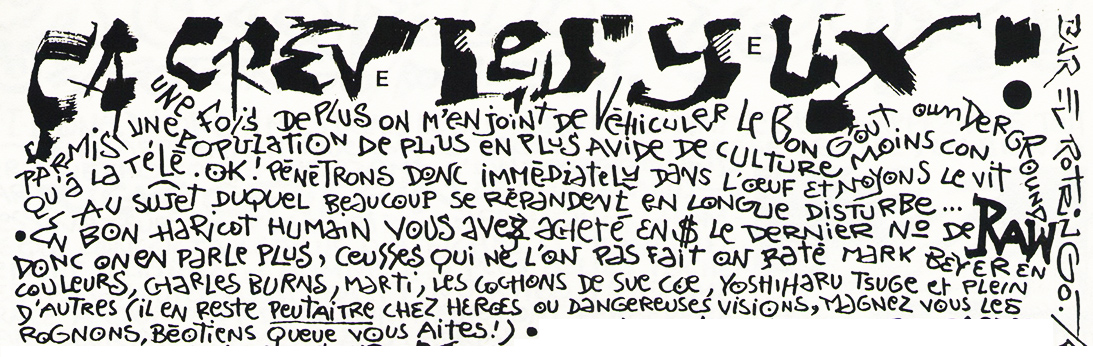 ÇA CREVE LES YEUX !
UNE FOIS DE PLUS ON M'ENJOINT DE VÉHICULER LE BON GOÛT OUUNDERGROUND
PARMIS UNE POPULATION DE PLUS EN PLUS AVIDE DE CULTURE MOINS CON
QU'À LA TÉLÉ. OK! PÉNÉTRONS DONC IMMÉDIATELY DANS L'ŒUF ET NOYONS LE VIT
AU SUJET DUQUEL BEAUCOUP SE RÉPANDENT EN LONGUE DISTURBE...
• EN BON HARICOT HUMAIN VOUS AVEZ ACHETÉ EN $ LE DERNIER No DE RAW
DONC ON EN PARLE PLUS, CEUSSES QUI NE L'ON PAS FAIT ON RATÉ MARK BEYER EN
COULEURS, CHARLES BURNS, MARTI, LES COCHONS DE SUE COE, YOSHIHARU TSUGE ET PLEIN
D'AUTRES (IL EN RESTE PEUTAÎTRE CHEZ HERGÉS OU DANGEREUSES VISIONS, MAGNEZ VOUS LES
ROGNONS, BÉOTIENS QUEUE VOUS AITES!) •
BAR EL ROTRINGO./